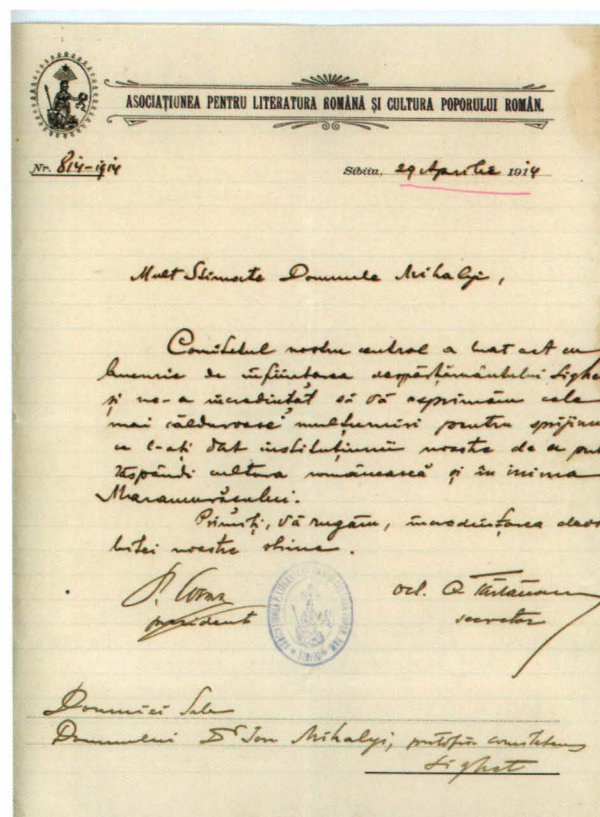 ASOCIAȚIUNEA PENTRU LITERATURA ROMÂNĂ ȘI CULTURA POPORULUI ROMÂN.
Nr. 814-1914
Sibiiu, 29 Aprilie 1914
Mult Stimate Domnule Mihalyi,
Comitetul nostru central a luat act cu
bucurie de înființarea despărțământului Sighe
și ne-a încredințat să vă exprimăm cele
mai călduroase mulțumiri pentru sprijinu
ce l-ați dat instituțiunii noastre de a pu
răspândi cultura românească și în inima
Maramurășului.
Primiți, vă rugăm, încredințarea deos
bitei noastre stime.
president
oct. C. Tăslăuanu
secretar
Domniei Sale
Domnului Dr Ion Mihalyi,
Sighet